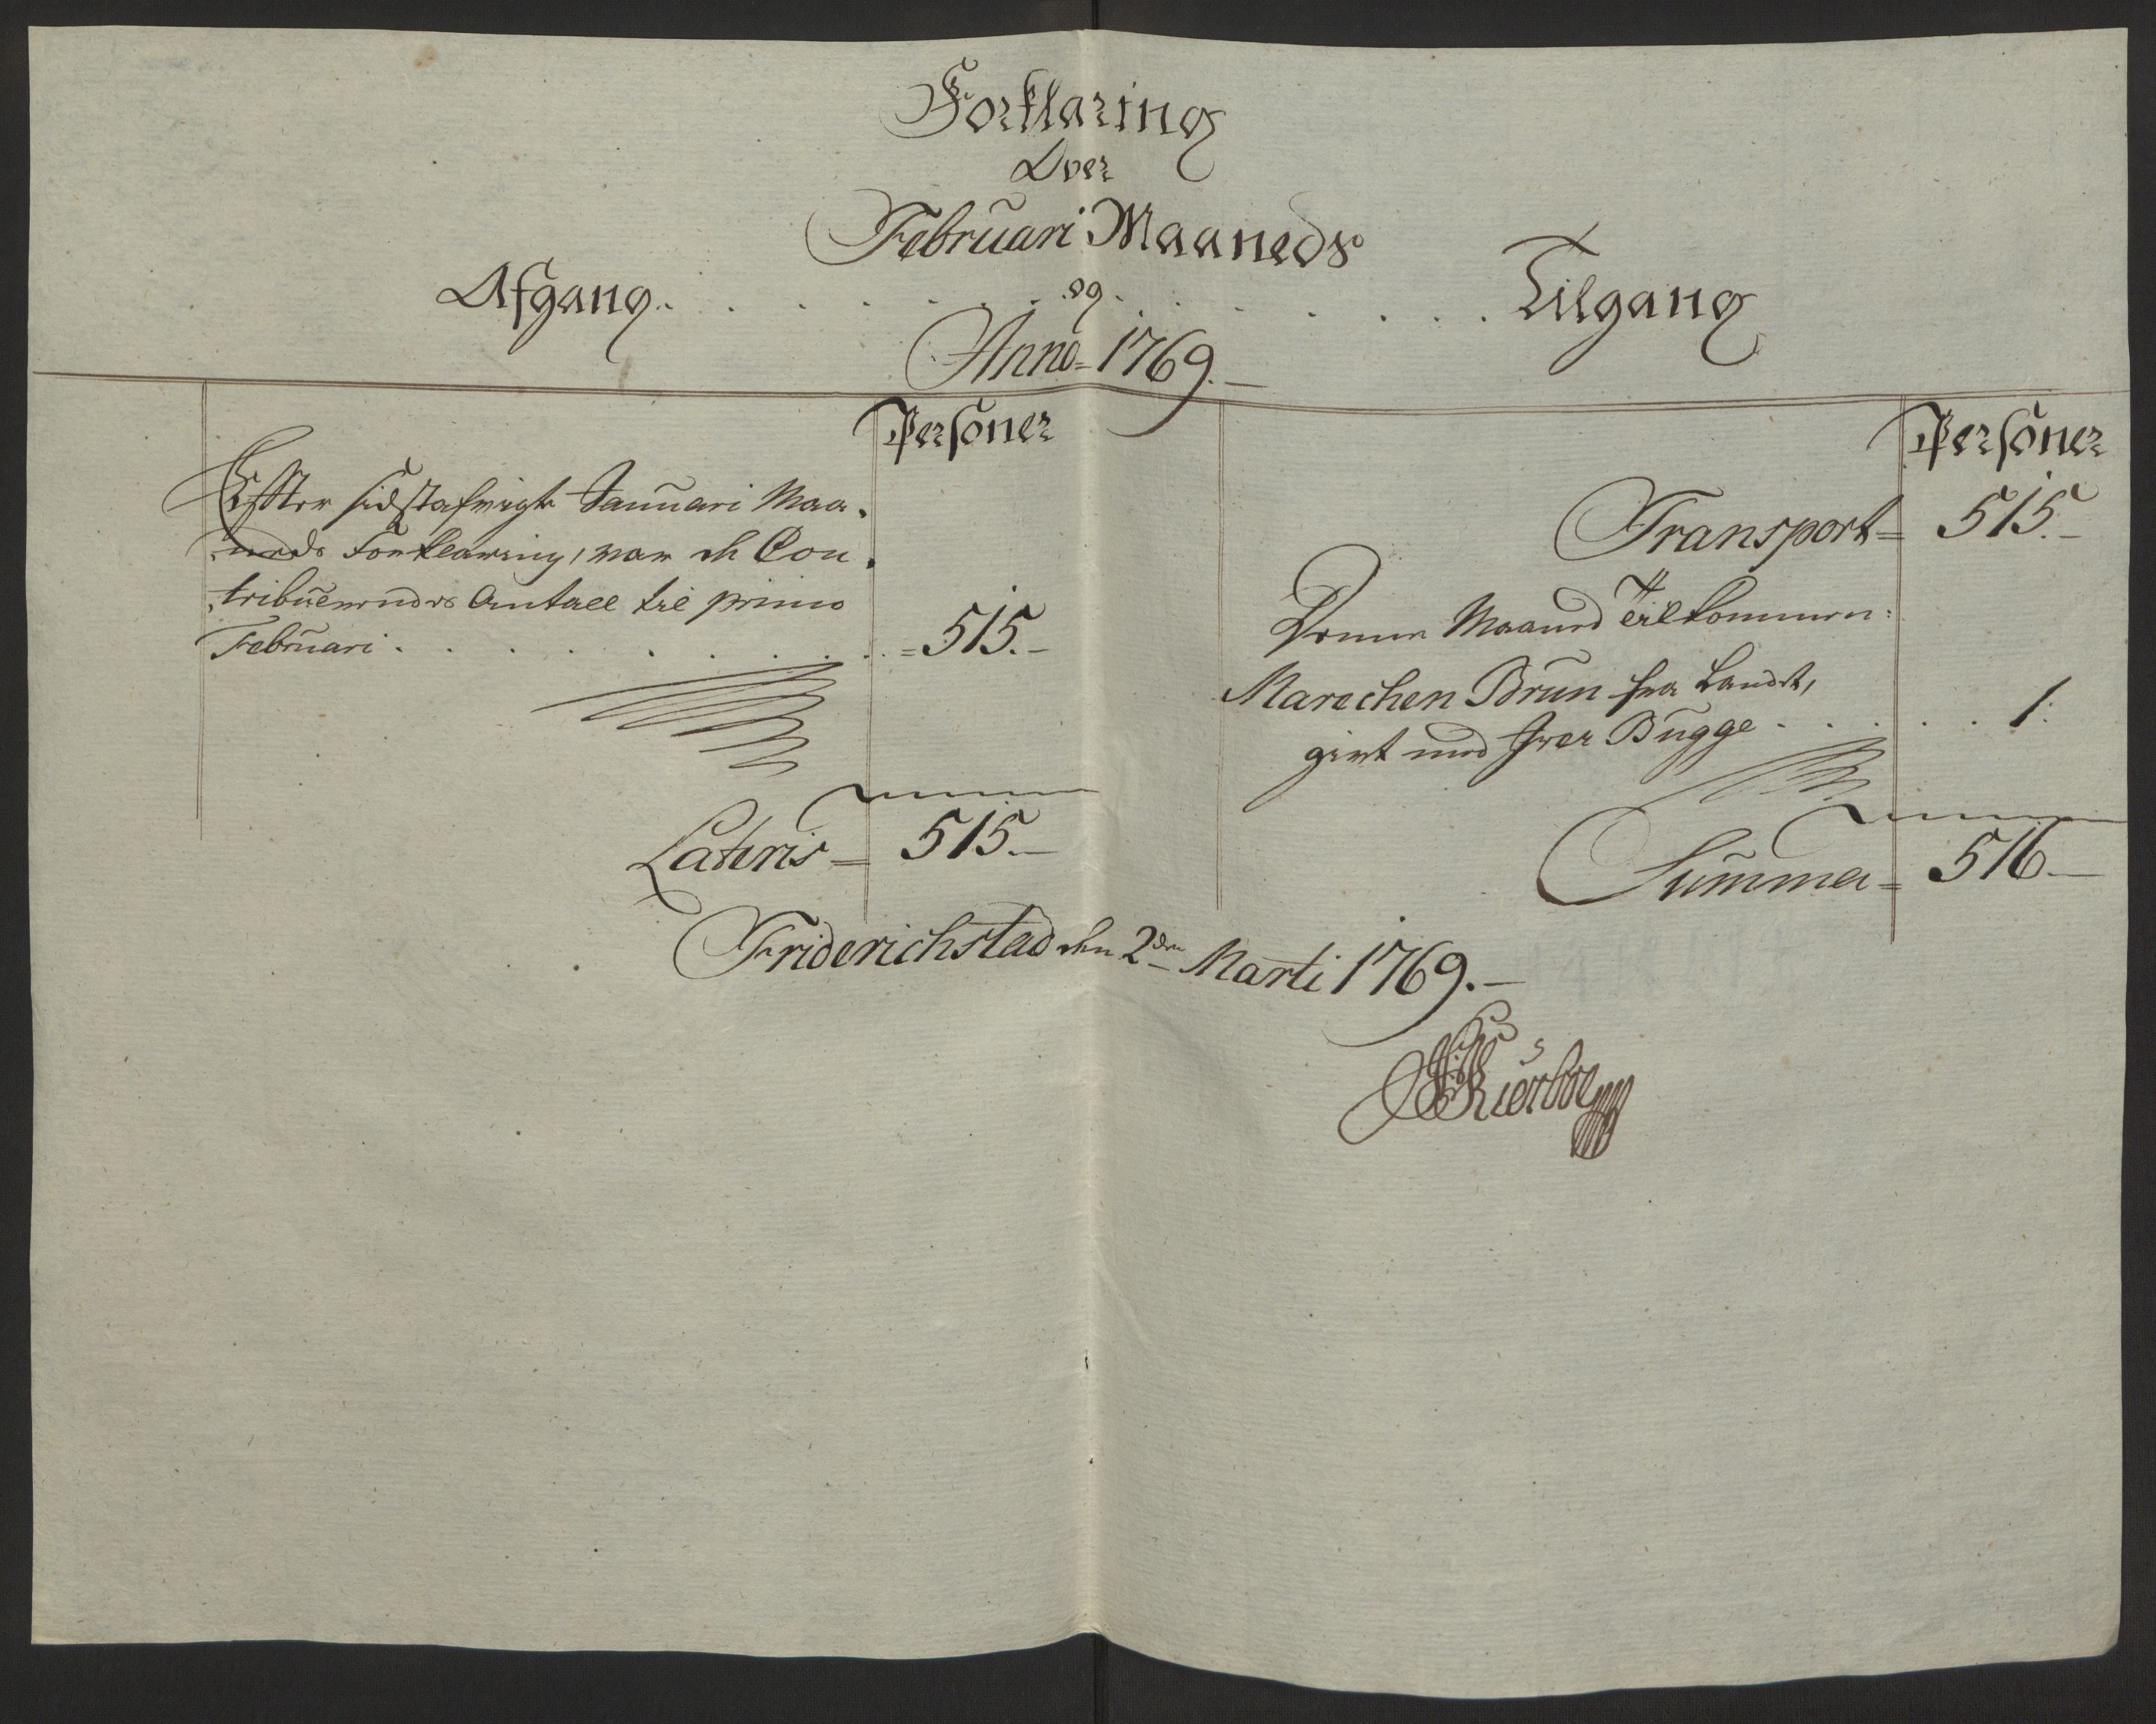 Forklaring
Over
Februari Maaneds
Afgang . . . . . . og . . . . . . Tilgang
Anno 1769.
Personer
Efter sidst afvigte Januari Maa-
neds Forklaring, var de Con-
tribuerendes Antall til primo
Februari . . . . . . . . . = 515.-
Lateris = 515.-
Personer
Transport = 515.-
Denne Maaned Tilkommen:
Marechen Brun fra Landet,
gift med Iver Bugge . . . . . . 1.
Summa = 516.-
Friderichstad den 2den Marti 1769.-